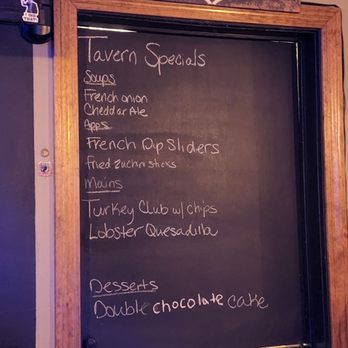 Tavern Specials
Soups
French onion
Cheddar Ale
Apps
French Dip Sliders
Fried zuchni sticks
Mains
Turkey Club w/ chips
Lobster Quesadilla
Desserts
Double chocolate cake